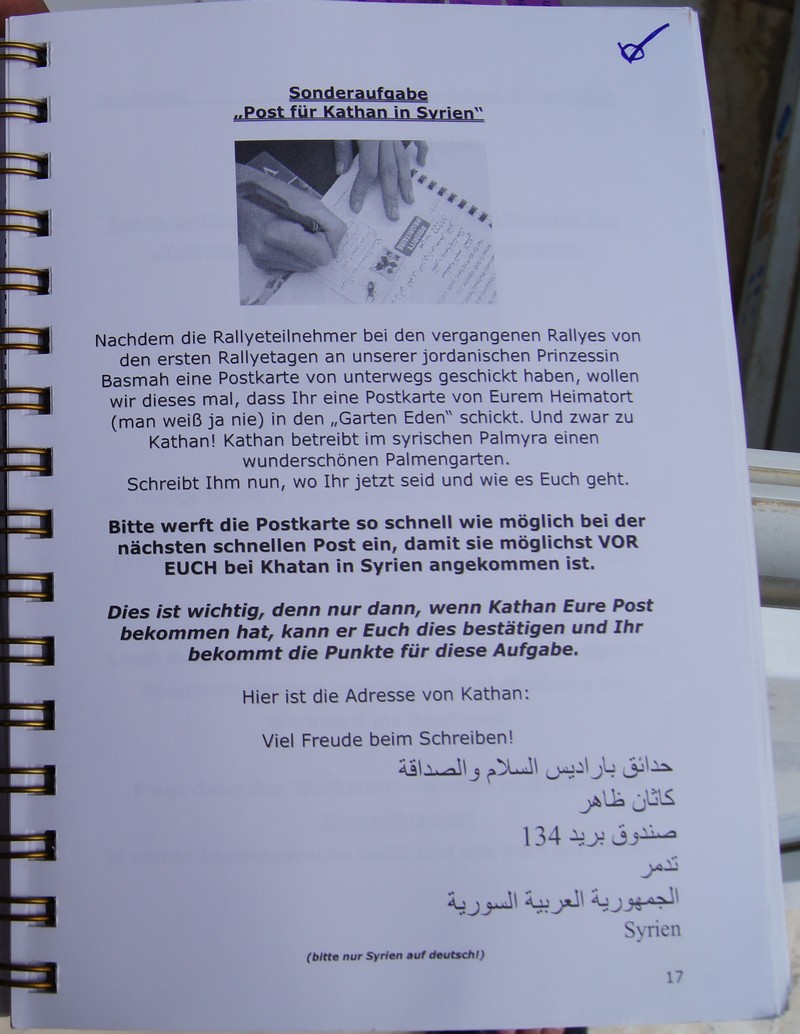 Sonderaufgabe
„Post für Kathan in Syrien“
Nachdem die Rallyeteilnehmer bei den vergangenen Rallyes von
den ersten Rallyetagen an unserer jordanischen Prinzessin
Basmah eine Postkarte von unterwegs geschickt haben, wollen
wir dieses mal, dass Ihr eine Postkarte von Eurem Heimatort
(man weiß ja nie) in den „Garten Eden“ schickt. Und zwar zu
Kathan! Kathan betreibt im syrischen Palmyra einen
wunderschönen Palmengarten.
Schreibt Ihm nun, wo Ihr jetzt seid und wie es Euch geht.
Bitte werft die Postkarte so schnell wie möglich bei der
nächsten schnellen Post ein, damit sie möglichst VOR
EUCH bei Khatan in Syrien angekommen ist.
Dies ist wichtig, denn nur dann, wenn Kathan Eure Post
bekommen hat, kann er Euch dies bestätigen und Ihr
bekommt die Punkte für diese Aufgabe.
Hier ist die Adresse von Kathan:
Viel Freude beim Schreiben!
حدائق باراديس السلام والصداقة
كاثان ظاهر
صندوق بريد 134
تدمر
الجمهورية العربية السورية
Syrien
(bitte nur Syrien auf deutsch!)
17